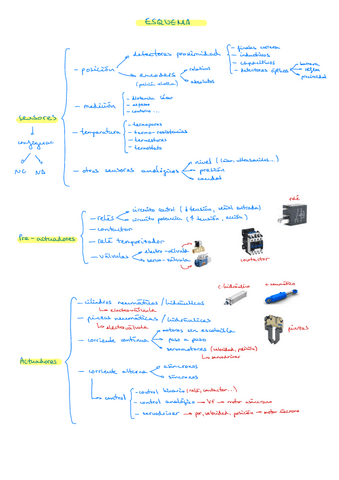 ESQUEMA
sensores
configurar
NC NA
- posición
detectores proximidad
- finales carrera
- inductivos
- capacitivos
- detectores ópticos
barrera
reflex
proximidad
encoders
relativos
absolutos
- medición
- distancia láser
- temperatura
- termopares
- termo-resistencias
- termistores
- termostato
- otros sensores analógicos
nivel (láser, ultrasonidos...)
presión
caudal
Pre-actuadores
- relés
circuito control (↓ tensión, señal entrada)
circuito potencia (↑ tensión, acción)
relé
- contactor
- relé temporizador
- válvulas
electro-válvula
servo-válvula
contactor
c. hidráulico
c. neumático
Actuadores
- cilindros neumáticos / hidráulicos
↳ electroválvula
- pinzas neumáticas / hidráulicas
↳ electroválvula
pinzas
- corriente continua
motores sin escobilla
paso a paso
servomotores (velocidad, posición)
↳ servodriver
- corriente alterna
asíncronos
síncronos
control
- control binario (relé, contactor...)
- control analógico → VF → motor asíncrono
- servodriver → par, velocidad, posición → motor síncrono